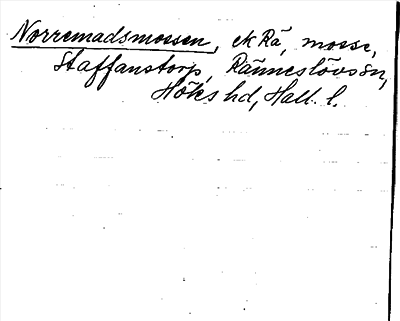 Norremadsmossen, ek Rä, mosse,
Staffanstorp, Ränneslövs sn,
Höks hd, Hall. l.